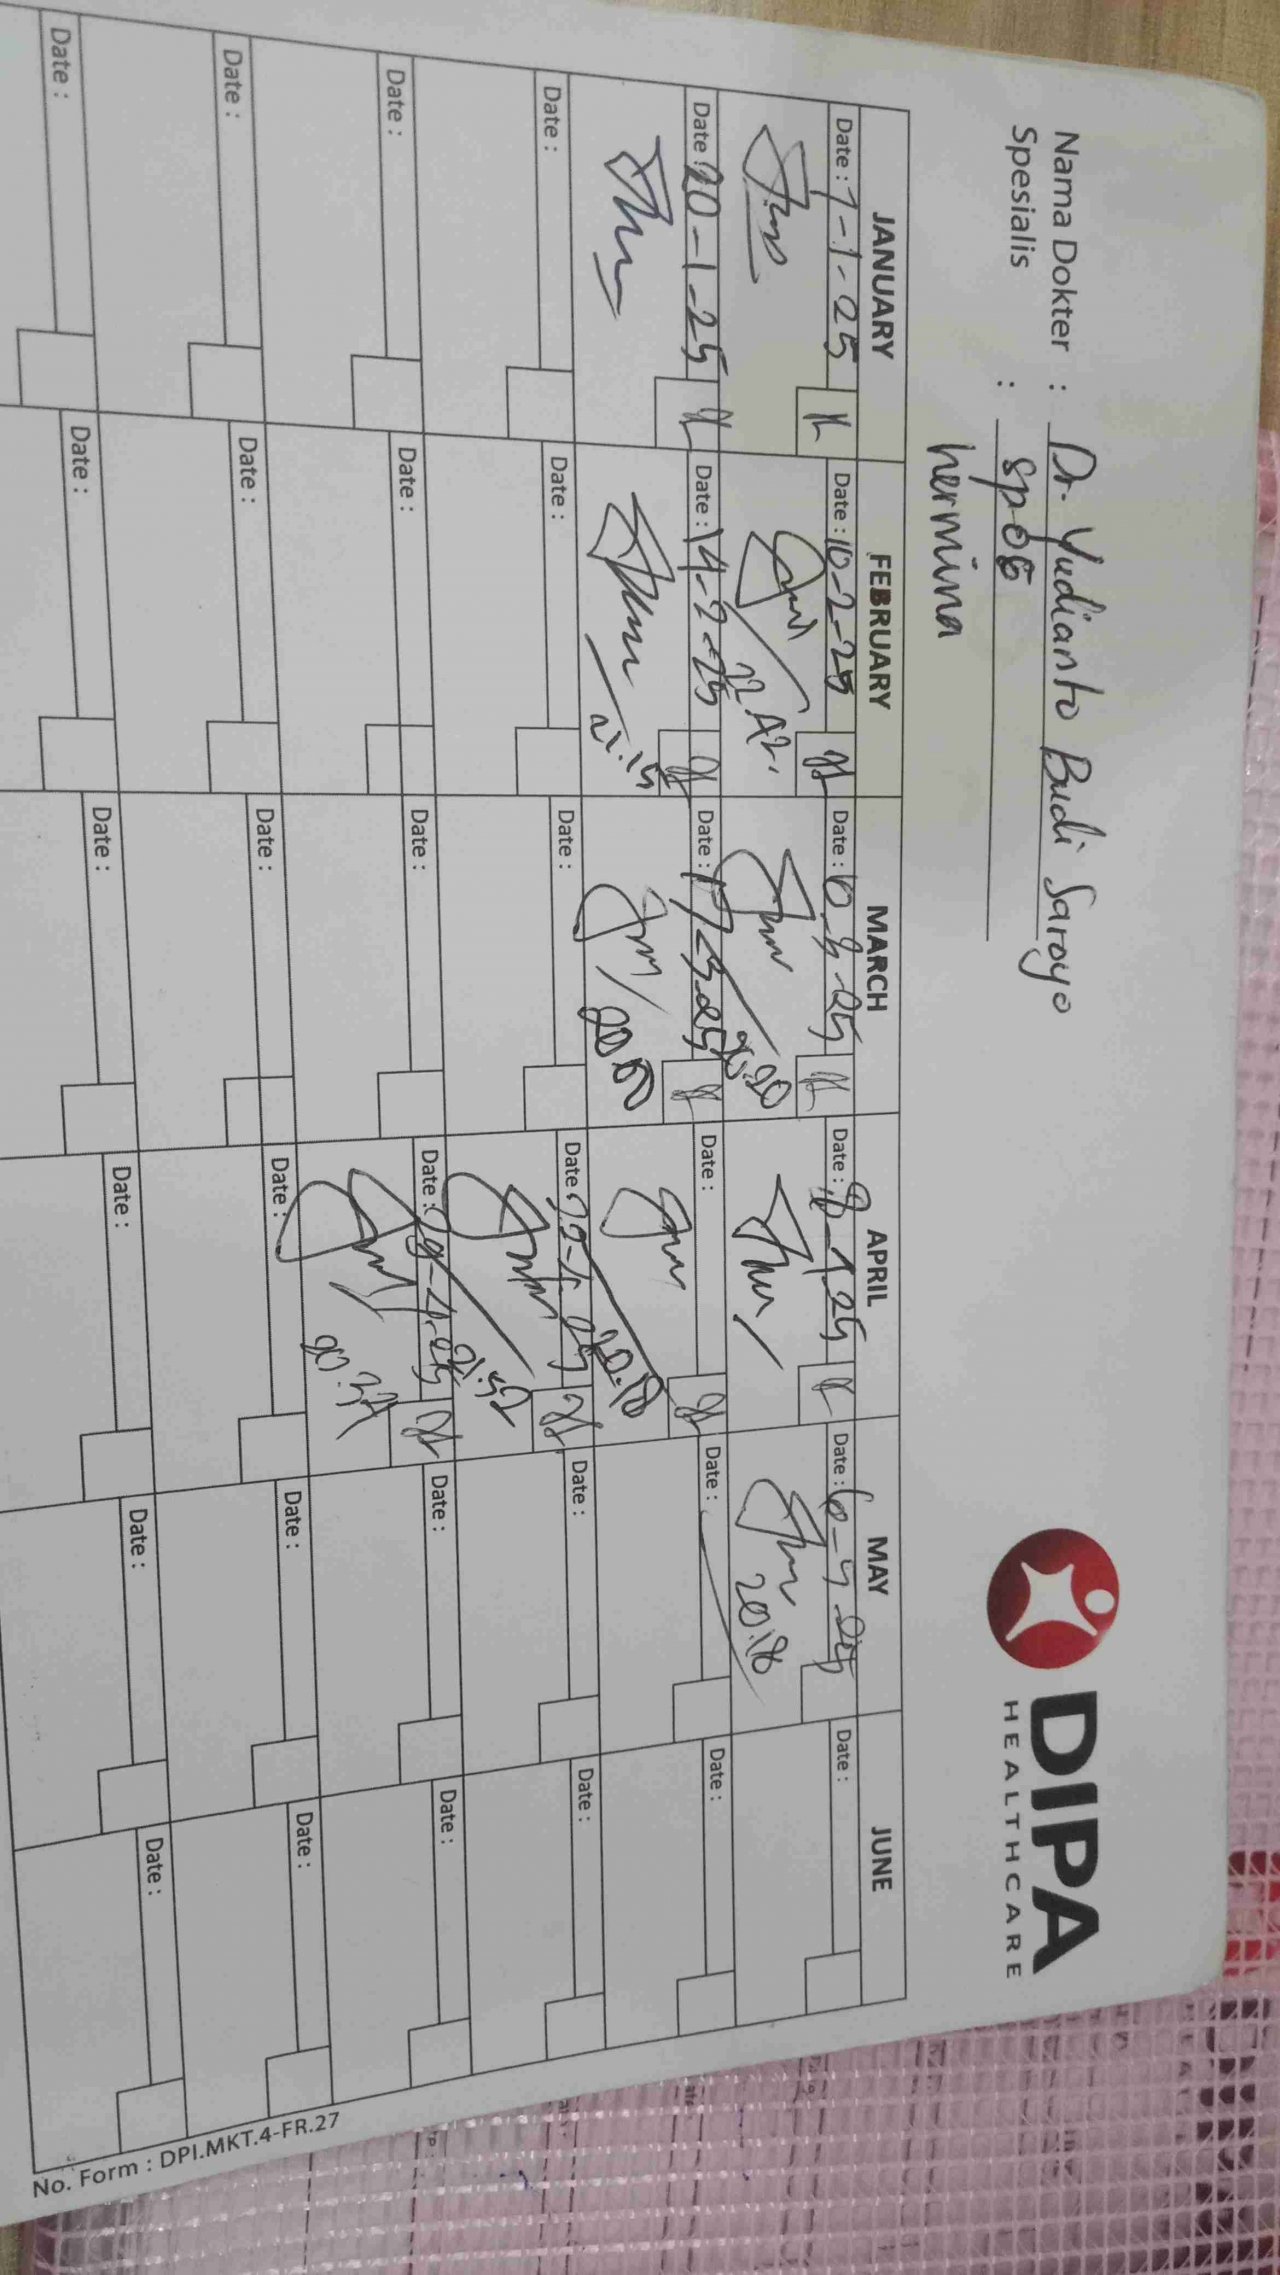 Nama Dokter : Dr. Yudianto Budi Saroyo
Spesialis : SpOG
hermina
DIPA
HEALTHCARE
JANUARY FEBRUARY MARCH APRIL MAY JUNE
Date : 7-1-25 Date : 10-2-25 Date : 10-3-25 Date : 8-4-25 Date : 6-5-25 Date :
22.42. 20.20 20.18
Date : 20-1-25 Date : 14-2-25 Date : 17-3-25 Date : Date : Date :
21.15 20.00 20.18
Date : Date : Date : Date : Date : Date :
21.52
Date : Date : Date : Date : 29-4-25 Date : Date :
20.37
Date : Date : Date : Date : Date : Date :
Date : Date : Date : Date : Date : Date :
No. Form : DPI.MKT.4-FR.27